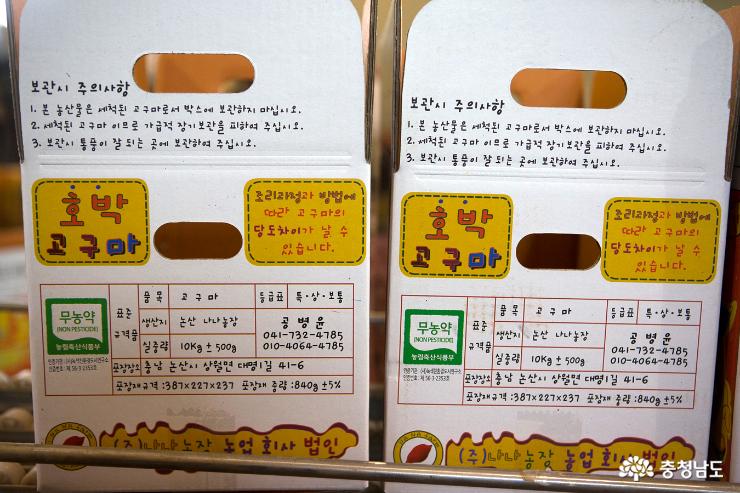 보관시 주의사항
1. 본 농산물은 세척된 고구마로서 박스에 보관하지 마십시오.
2. 세척된 고구마 이므로 가급적 장기보관을 피하여 주십시오.
3. 보관시 통풍이 잘 되는 곳에 보관하여 주십시오.
호박
고구마
조리과정과 방법에
따라 고구마의
당도차이가 날 수
있습니다.
무농약
(NON PESTICIDE)
농림축산식품부
표준
규격품
품목 고구마 등급표 특·상·보통
생산지 논산 나나농장
실중량 10Kg ± 500g
공병윤
041-732-4785
010-4064-4785
포장장소 충남 논산시 상월면 대명1길 41-6
포장재규격 :387×227×237 포장재 중량 :840g ±5%
(주)나나농장 농업회사법인
보관시 주의사항
1. 본 농산물은 세척된 고구마로서 박스에 보관하지 마십시오.
2. 세척된 고구마 이므로 가급적 장기보관을 피하여 주십시오.
3. 보관시 통풍이 잘 되는 곳에 보관하여 주십시오.
호박
고구마
조리과정과 방법에
따라 고구마의
당도차이가 날 수
있습니다.
무농약
(NON PESTICIDE)
농림축산식품부
표준
규격품
품목 고구마 등급표 특·상·보통
생산지 논산 나나농장
실중량 10Kg ± 500g
공병윤
041-732-4785
010-4064-4785
포장장소 충남 논산시 상월면 대명1길 41-6
포장재규격 :387×227×237 포장재 중량 :840g ±5%
(주)나나농장 농업회사법인
충청남도